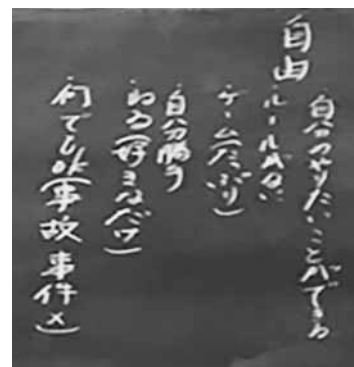 自由
・自分のやりたいことができる
・ルールがない
・ゲーム(たっぷり)
・自分勝手
・ねる(好きなだけ)
・何でもOK(事故事件×)